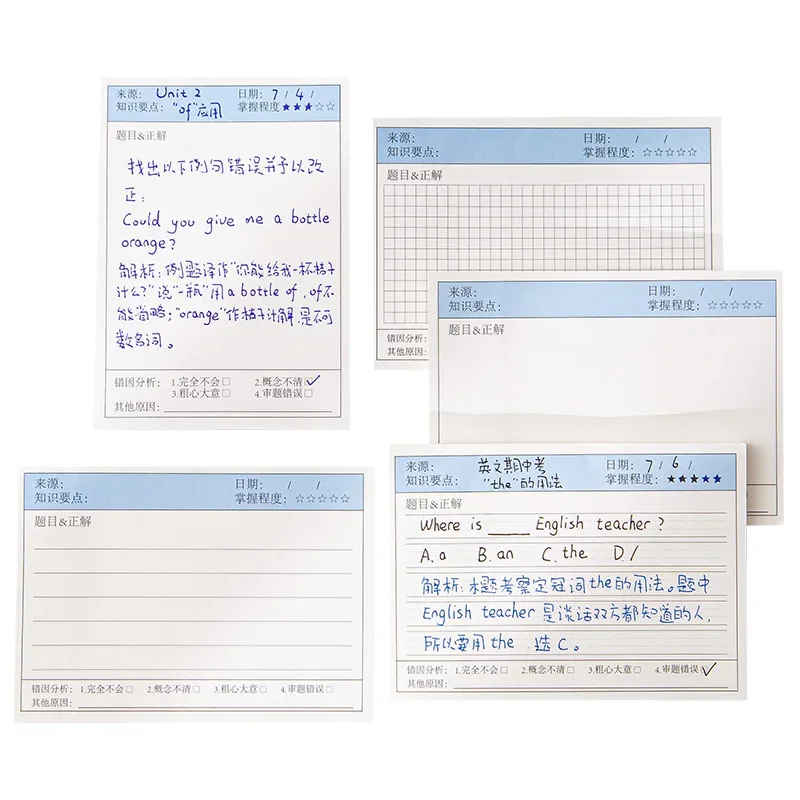 来源: Unit 2 日期: 7 / 4 /
知识要点: "of"应用 掌握程度★★★☆☆
题目&正解
找出以下例句错误并予以改
正:
Could you give me a bottle
orange?
解析: 例题译作"你能给我一杯桔子
汁么?"说"一瓶"用a bottle of, of不
能省略; "orange"作桔子汁解, 是不可
数名词。
错因分析: 1.完全不会□ 2.概念不清☑
3.粗心大意□ 4.审题错误□
其他原因:
来源: 日期: / /
知识要点: 掌握程度: ☆☆☆☆☆
题目&正解
错因分析:
其他原因:
来源: 日期: / /
知识要点: 掌握程度: ☆☆☆☆☆
题目&正解
来源: 日期: / /
知识要点: 掌握程度: ☆☆☆☆☆
题目&正解
错因分析: 1.完全不会□ 2.概念不清□ 3.粗心大意□ 4.审题错误□
其他原因:
来源: 英文期中考 日期: 7 / 6 /
知识要点: "the"的用法 掌握程度: ★★★★★
题目&正解
Where is ____ English teacher?
A. a B. an C. the D. /
解析: 本题考察定冠词the的用法。题中
English teacher 是谈话双方都知道的人,
所以要用the, 选C。
错因分析: 1.完全不会□ 2.概念不清□ 3.粗心大意□ 4.审题错误☑
其他原因: